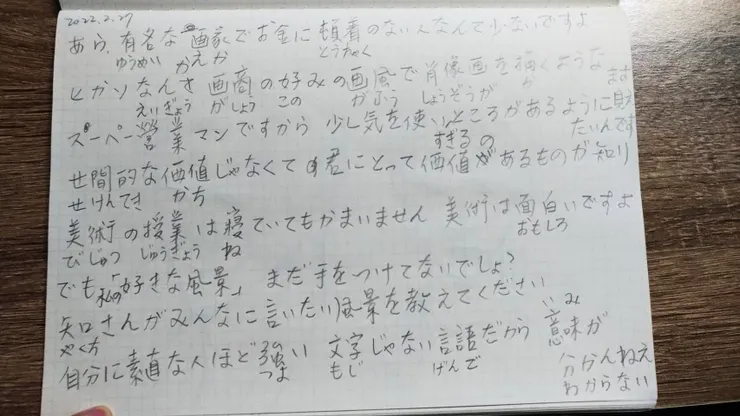 2022.2.27
あら、有名な画家でお金に頓着のない人なんて少ないですよ
ゆうめい がえか とうちゃく
ピカソなんさ画商の好みの画風で肖像画を描くような
えいぎょう がしょう この がふう しょうぞうが か
スーペー営業マンですから 少し気を使いところがあるように見え
ます
すぎるの たいんです
世間的な価値じゃなくて 君にとって価値があるものが知り
せけんてき かち
美術の授業は寝ていてもかまいません 美術は面白いですよ
びじゅつ じゅうぎょう ね おもしろ
でも「私の好きな風景」 まだ手をつけてないでしょ?
矢口さんがみんなに言いたい風景を教えてください
やぐち いみ
自分に素直な人ほど強い 文字じゃない言語だから 意味が
つよ もじ げんで
分かんねえ
わからない